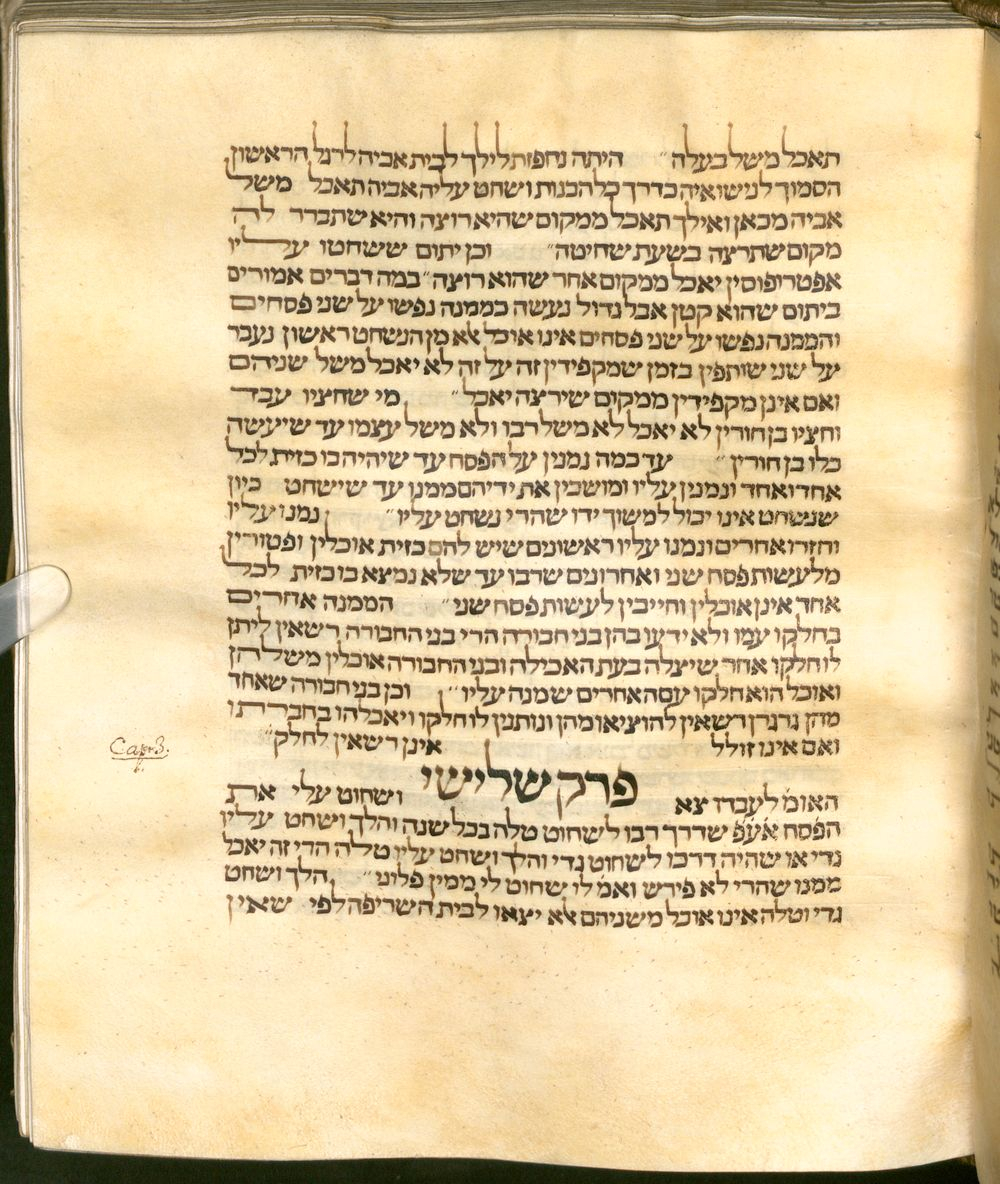 תאכל משל בעלה״ היתה נחפזת לילך לבית אביה לרגל הראשון
הסמוך לנישואיה כדרך כל הבנות ושחט עליה אביה תאכל משל
אביה מכאן ואילך תאכל ממקום שהיא רוצה והיא שתברר לה
מקום שתרצה בשעת שחיטה״ וכן יתום ששחטו עליו
אפטרופוסין יאכל ממקום אחר שהוא רוצה״ במה דברים אמורים
ביתום שהוא קטן אבל גדול נעשה כממנה נפשו על שני פסחים
והממנה נפשו על שני פסחים אינו אוכל אלא מן הנשחט ראשון נעבר
על שני שותפין בזמן שמקפידין זה על זה לא יאכל משל שניהם
ואם אינן מקפידין ממקום שירצה יאכל״ מי שחציו עבד
וחציו בן חורין לא יאכל לא משל רבו ולא משל עצמו עד שיעשה
כלו בן חורין״ עד כמה נמנין על הפסח עד שיהיה בו כזית לכל
אחד ואחד ונמנין עליו ומושכין את ידיהם ממנו עד שישחט כיון
שנשחט אינו יכול למשוך ידו שהרי נשחט עליו״ נמנו עליו
וחזרו אחרים ונמנו עליו ראשונים שיש להם כזית אוכלין ופטורין
מלעשות פסח שני ואחרונים שרבו עד שלא נמצא בו כזית לכל
אחד אינן אוכלין וחייבין לעשות פסח שני״ הממנה אחרים
בחלקו עמו ולא ידעו בהן בני חבורה הרי בני החבורה רשאין ליתן
לו חלקו אחר שיצלה בעת האכילה ובני החבורה אוכלין משלהן
ואוכל הוא חלקו עם האחרים שמנה עליו״ וכן בני חבורה שאחד
מהן גרגרן רשאין להוציאו מהן ונותנין לו חלקו ויאכלהו בחברתו
ואם אינו זולל אינן רשאין לחלק״
פרק שלישי
Cap. 3.
האומ׳ לעבדו צא ושחוט עלי את
הפסח אע״פ שדרך רבו לשחוט טלה בכל שנה והלך ושחט עליו
גדי או שהיה דרכו לשחוט גדי והלך ושחט עליו טלה הרי זה יאכל
ממנו שהרי לא פירש ואמ׳ לו שחוט לי ממין פלוני״ הלך ושחט
גדי וטלה אינו אוכל משניהם אלא יצאו לבית השריפה לפי שאין